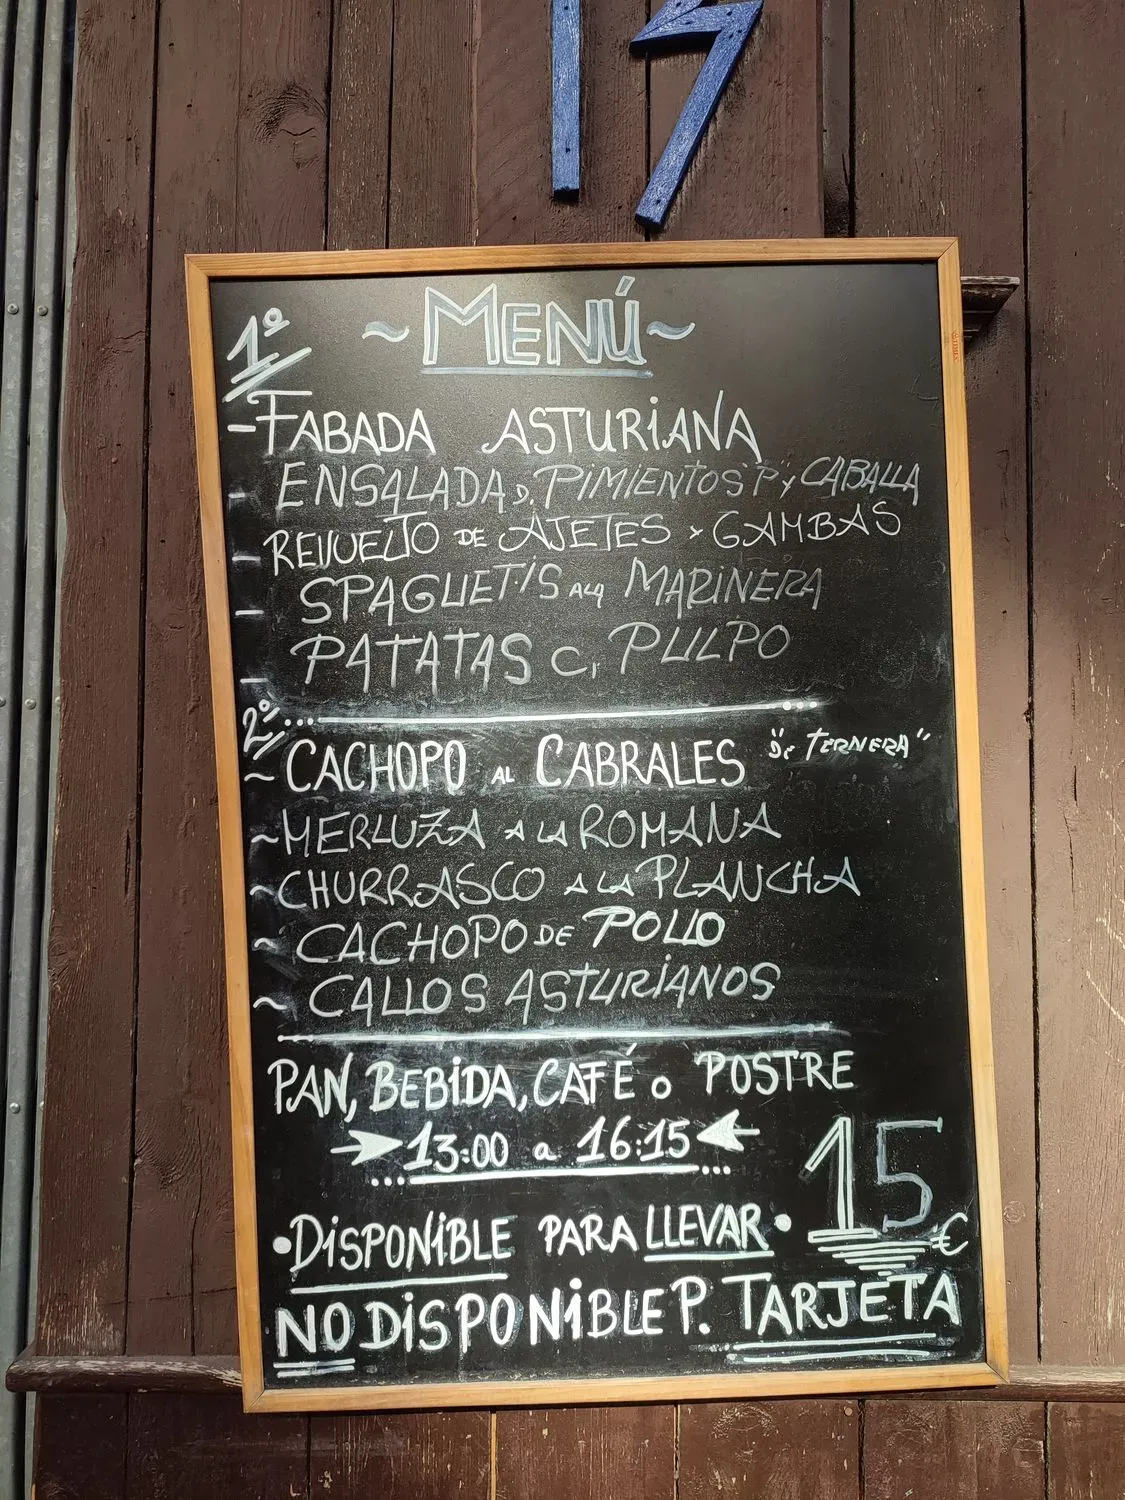 ~MENÚ~
1º
-FABADA ASTURIANA
- ENSALADA D. PIMIENTOS "P" Y CABALLA
- REVUELTO DE AJETES Y GAMBAS
- SPAGUETIS A LA MARINERA
- PATATAS C, PULPO
2º
~ CACHOPO AL CABRALES "DE TERNERA"
~ MERLUZA A LA ROMANA
~ CHURRASCO A LA PLANCHA
~ CACHOPO DE POLLO
~ CALLOS ASTURIANOS
PAN, BEBIDA, CAFÉ O POSTRE
13:00 a 16:15
15 €
•DISPONIBLE PARA LLEVAR•
NO DISPONIBLE P. TARJETA